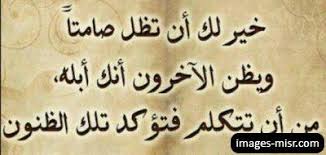 خير لك أن تظل صامتاً
ويظن الآخرون أنك أبله،
من أن تتكلم فتؤكد تلك الظنون
images-misr.com